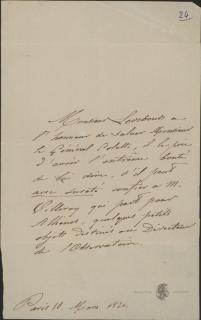 24
Monsieur Lerebours a
l'honneur de saluer Monsieur
le Général Coletti, & le prie
d'avoir l'extrême bonté
de lui dire, s'il peut
avec sureté confier à M.
qui part pour
Athènes, quelques petits
objets destinés au Directeur
de l'Observatoire.
Paris 18 Mars